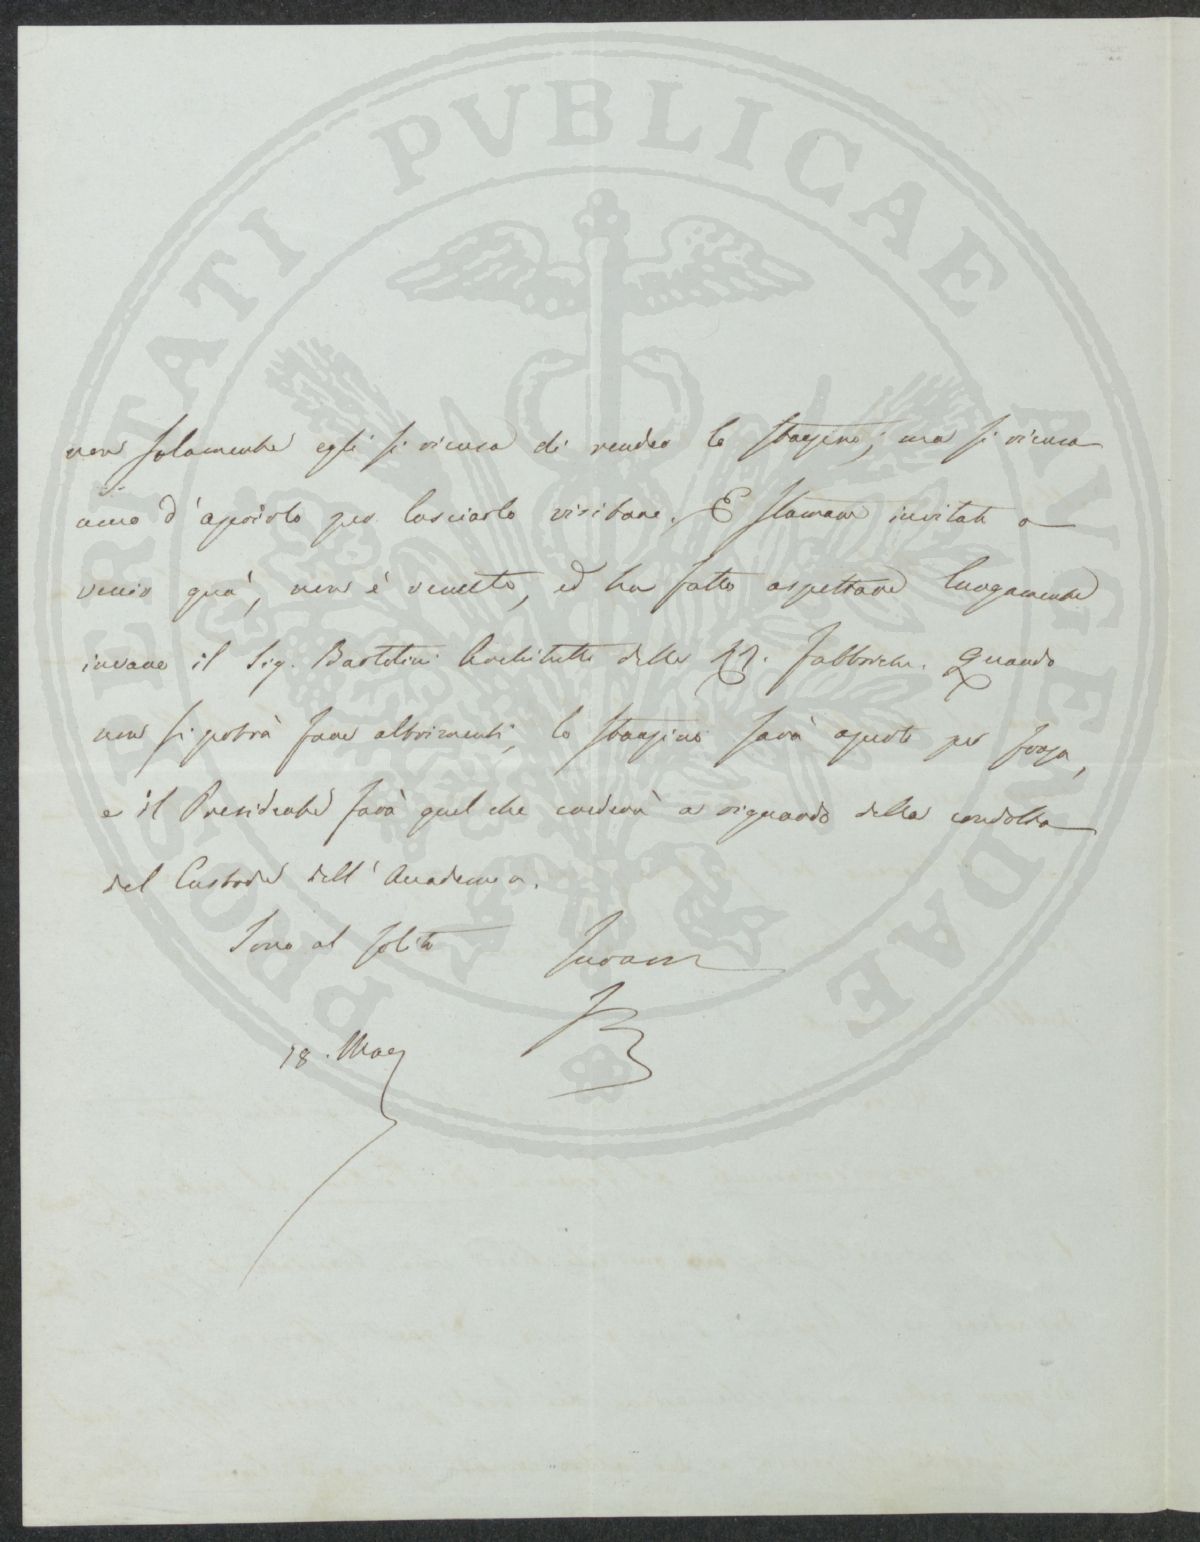 PROSPERITATI PVBLICAE AVGENDAE
non solamente egli si ricusa di render lo stanzino; ma si ricusa
anco d'aprirlo per lasciarlo visitare. E stamane invitato a
venir quà, non è venuto, ed ha fatto aspettare lungamente
invano il Sig. Bartolini Architetto delle RR. Fabbriche. Quando
non si potrà fare altrimenti, lo stanzino sarà aperto per forza,
e il Presidente farà quel che crederà a riguardo della condotta
del Custode dell'Accademia.
Sono al solito
18. Mag